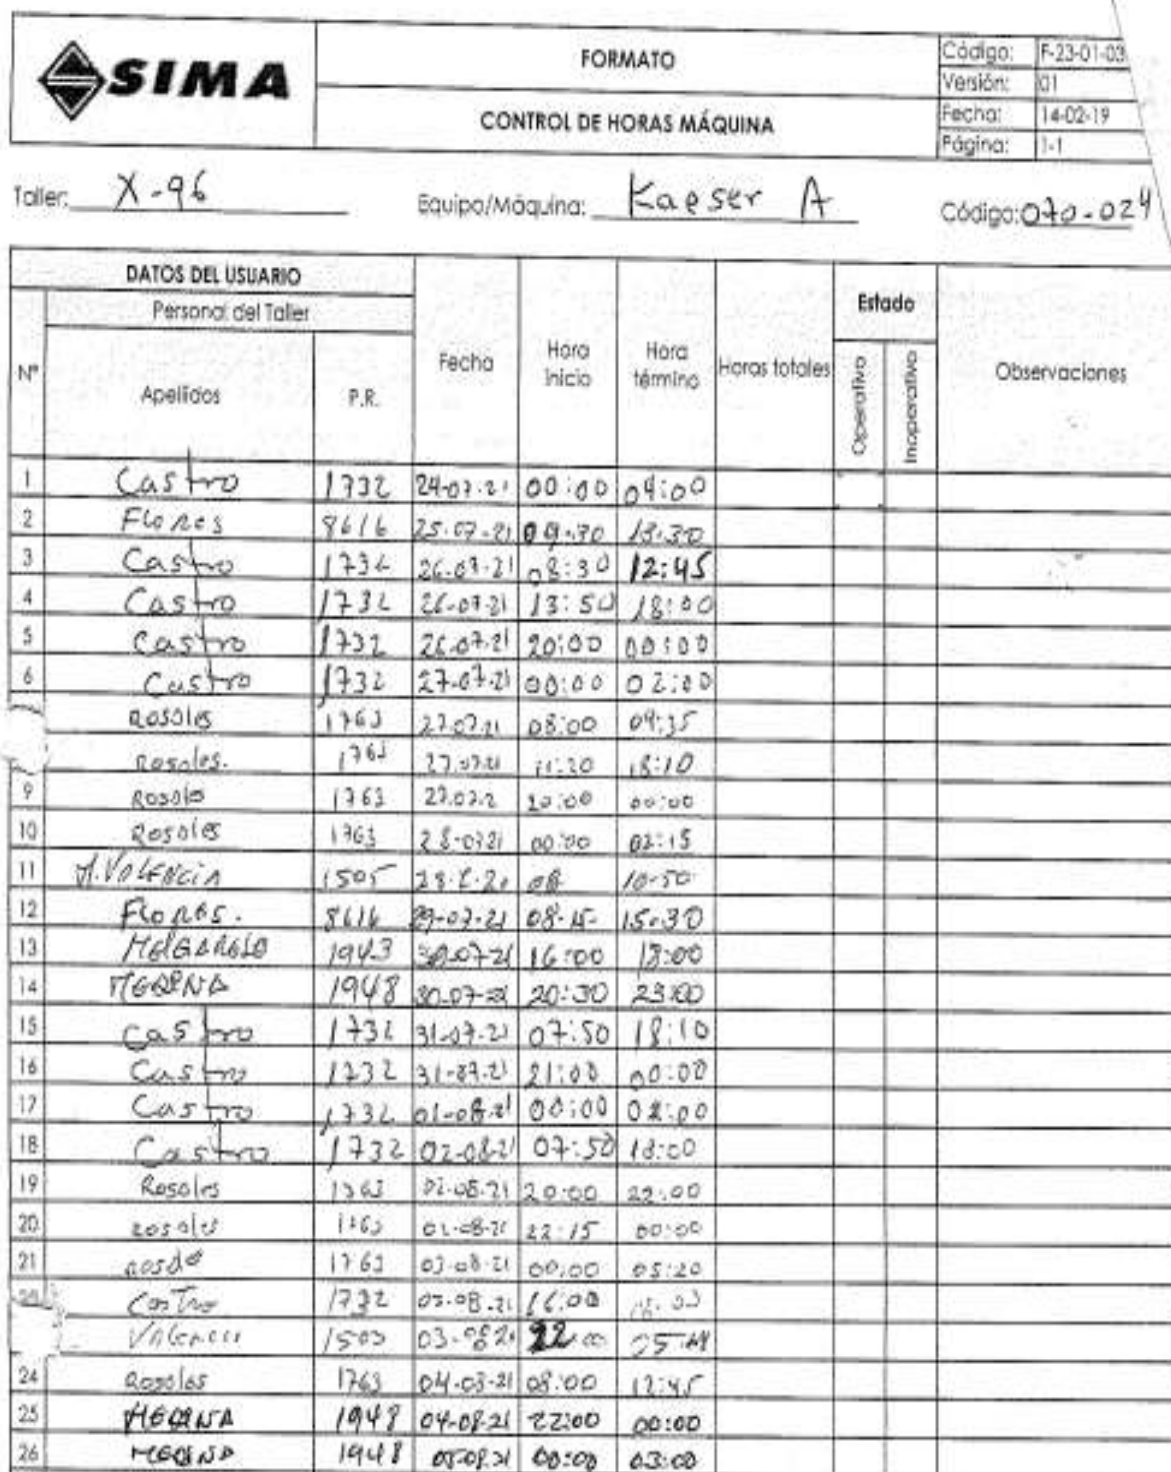 SIMA
FORMATO
CONTROL DE HORAS MÁQUINA
Código: F-23-01-03
Versión: 01
Fecha: 14-02-19
Página: 1-1
Taller: X-96 Equipo/Máquina: Kaeser A Código: 070-024
DATOS DEL USUARIO
Personal del Taller
Nº Apellidos P.R. Fecha Hora Inicio Hora término Horas totales Estado Operativo Inoperativo Observaciones
1 Castro 1732 24-07-21 00:00 04:00
2 Flores 8616 25-07-21 09-30 13-30
3 Castro 1732 26-07-21 08:30 12:45
4 Castro 1732 26-07-21 13:50 18:00
5 Castro 1732 26-07-21 20:00 00:00
6 Castro 1732 27-07-21 00:00 02:00
Rosales 1763 27.07.21 08:00 09:35
Rosales. 1763 27.07.21 11:20 18:10
9 Rosale 1763 27.07.2 20:00 00:00
10 Rosales 1763 28-0721 00:00 02:15
11 VALENCIA 1505 08 10-50
12 Flores. 8616 29-07-21 08-15- 15-30
13 MELGAREJO 1943 30-07-21 16:00 18:00
14 MEDINA 1948 30-07-21 20:30 23:00
15 Castro 1732 31-07-21 07:50 18:10
16 Castro 1732 31-07-21 21:00 00:00
17 Castro 1732 01-08-21 00:00 02:00
18 Castro 1732 02-08-21 07:50 18:00
19 Rosales 1763 02-08-21 20:00 22:00
20 Rosales 1763 02-08-21 22:15 00:00
21 1763 03-08-21 00:00 05:20
Castro 1732 03-08-21 16:00
Valencia 1505 03-0821 22:00
24 Rosales 1763 04-08-21 08:00 12:45
25 MEDINA 1948 04-08-21 22:00 00:00
26 MEDINA 1948 05-08-21 00:00 03:00